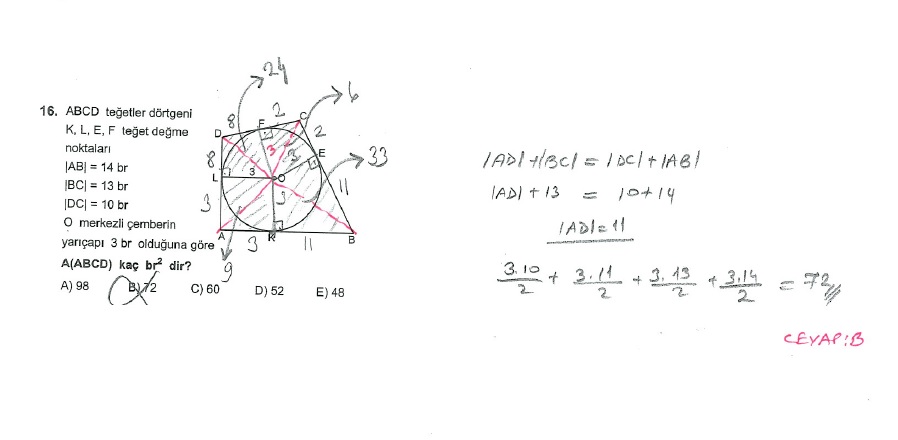 16. ABCD teğetler dörtgeni
K, L, E, F teğet değme
noktaları
|AB| = 14 br
|BC| = 13 br
|DC| = 10 br
O merkezli çemberin
yarıçapı 3 br olduğuna göre
A(ABCD) kaç br² dir?
A) 98 B) 72 C) 60 D) 52 E) 48
24
6
2
C
8
F
D
2
3
3
E
33
8
L
3
O
3
11
3
A
3
K
11
B
9
|AD|+|BC| = |DC|+|AB|
|AD|+13 = 10+14
|AD|=11
3.10/2 + 3.11/2 + 3.13/2 + 3.14/2 = 72//
CEVAP:B